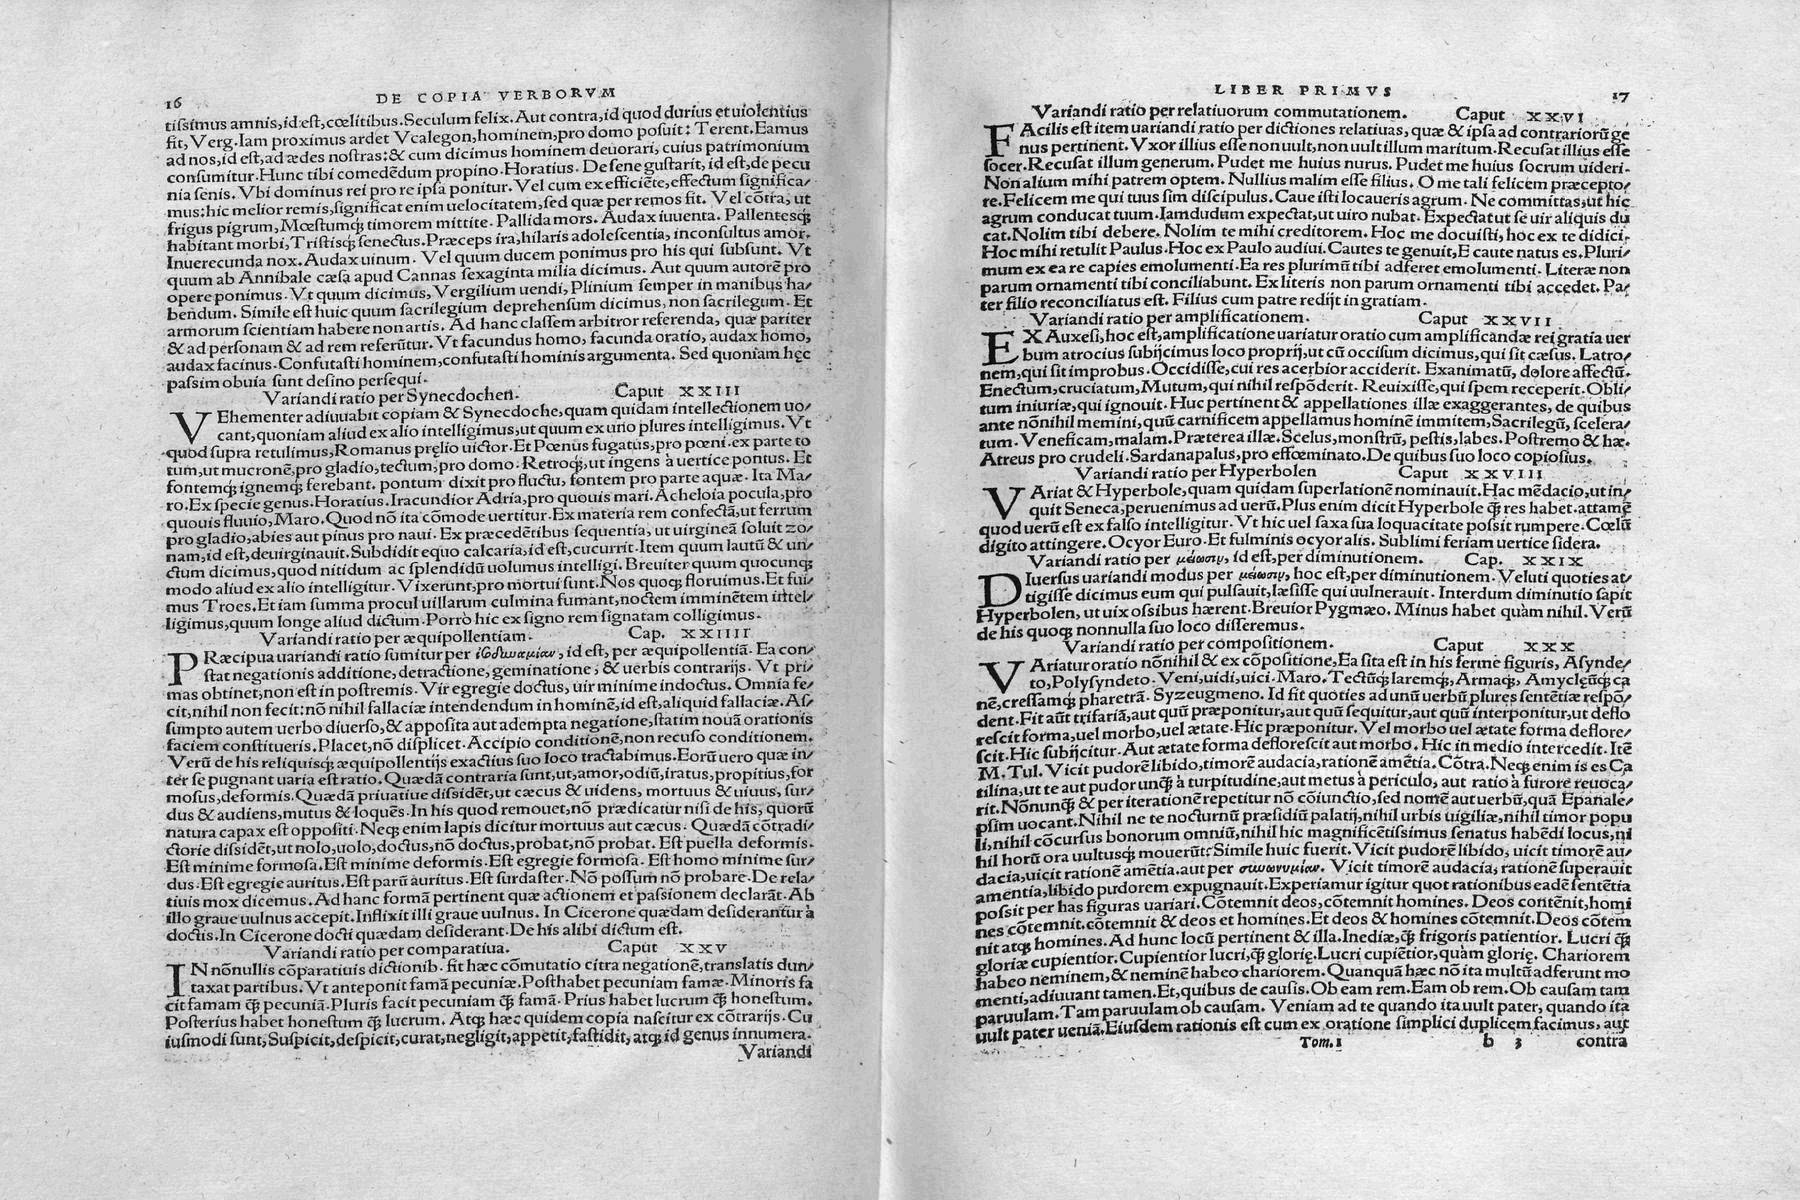 16
DE COPIA VERBORVM
tissimus amnis, id est, cœlitibus. Seculum felix. Aut contra, id quod durius et uiolentius
fit, Verg. Iam proximus ardet Vcalegon, hominem, pro domo posuit: Terent. Eamus
ad nos, id est, ad ædes nostras: & cum dicimus hominem deuorari, cuius patrimonium
consumitur. Hunc tibi comedēdum propino. Horatius. De sene gustarit, id est, de pecu⸗
nia senis. Vbi dominus rei pro re ipsa ponitur. Vel cum ex efficiēte, effectum significa⸗
mus: hic melior remis, significat enim uelocitatem, sed quæ per remos fit. Vel cōtra, ut
frigus pigrum, Mœstumq; timorem mittite. Pallida mors. Audax iuuenta. Pallentesq;
habitant morbi, Tristisq; senectus. Præceps ira, hilaris adolescentia, inconsultus amor.
Inuerecunda nox. Audax uinum. Vel quum ducem ponimus pro his qui subsunt. Vt
quum ab Annibale cæsa apud Cannas sexaginta milia dicimus. Aut quum autorē pro
opere ponimus. Vt quum dicimus, Vergilium uendi, Plinium semper in manibus ha⸗
bendum. Simile est huic quum sacrilegium deprehensum dicimus, non sacrilegum. Et
armorum scientiam habere non artis. Ad hanc classem arbitror referenda, quæ pariter
& ad personam & ad rem referūtur. Vt facundus homo, facunda oratio, audax homo,
audax facinus. Confutasti hominem, confutasti hominis argumenta. Sed quoniam hęc
passim obuia sunt desino persequi.
Variandi ratio per Synecdochen. Caput XXIII
VEhementer adiuuabit copiam & Synecdoche, quam quidam intellectionem uo⸗
cant, quoniam aliud ex alio intelligimus, ut quum ex uno plures intelligimus. Vt
quod supra retulimus, Romanus pręlio uictor. Et Pœnus fugatus, pro pœni. ex parte to
tum, ut mucronē, pro gladio, tectum, pro domo. Retroq;, ut ingens à uertice pontus. Et
fontemq; ignemq; ferebant. pontum dixit pro fluctu, fontem pro parte aquæ. Ita Ma⸗
ro. Ex specie genus. Horatius. Iracundior Adria, pro quouis mari. Acheloia pocula, pro
quouis fluuio, Maro. Quod nō ita cōmode uertitur. Ex materia rem confectā, ut ferrum
pro gladio, abies aut pinus pro naui. Ex præcedētibus sequentia, ut uirgineā soluit zo⸗
nam, id est, deuirginauit. Subdidit equo calcaria, id est, cucurrit. Item quum lautū & un⸗
ctum dicimus, quod nitidum ac splendidū uolumus intelligi. Breuiter quum quocunq;
modo aliud ex alio intelligitur. Vixerunt, pro mortui sunt. Nos quoq; floruimus. Et fui⸗
mus Troes. Et iam summa procul uillarum culmina fumant, noctem imminētem intel⸗
ligimus, quum longe aliud dictum. Porrò hic ex signo rem signatam colligimus.
Variandi ratio per æquipollentiam. Cap. XXIIII
PRæcipua uariandi ratio sumitur per ἰσοδυναμίαν, id est, per æquipollentiā. Ea con⸗
stat negationis additione, detractione, geminatione, & uerbis contrarijs. Vt pri⸗
mas obtinet, non est in postremis. Vir egregie doctus, uir minime indoctus. Omnia fe⸗
cit, nihil non fecit: nō nihil fallaciæ intendendum in hominē, id est, aliquid fallaciæ. As⸗
sumpto autem uerbo diuerso, & apposita aut adempta negatione, statim nouā orationis
faciem constitueris. Placet, nō displicet. Accipio conditionē, non recuso conditionem.
Verū de his reliquisq; æquipollentijs exactius suo loco tractabimus. Eorū uero quæ in⸗
ter se pugnant uaria est ratio. Quædā contraria sunt, ut, amor, odiū, iratus, propitius, for
mosus, deformis. Quædā priuatiue dissidēt, ut cæcus & uidens, mortuus & uiuus, sur⸗
dus & audiens, mutus & loquēs. In his quod remouet, nō prædicatur nisi de his, quorū
natura capax est oppositi. Neq; enim lapis dicitur mortuus aut cæcus. Quædā cōtradi⸗
ctorie dissidēt, ut nolo, uolo, doctus, nō doctus, probat, nō probat. Est puella deformis.
Est minime formosa. Est minime deformis. Est egregie formosa. Est homo minime sur⸗
dus. Est egregie auritus. Est parū auritus. Est surdaster. Nō possum nō probare. De rela⸗
tiuis mox dicemus. Ad hanc formā pertinent quæ actionem et passionem declarāt. Ab
illo graue uulnus accepit. Inflixit illi graue uulnus. In Cicerone quædam desiderantur à
doctis. In Cicerone docti quædam desiderant. De his alibi dictum est.
Variandi ratio per comparatiua. Caput XXV
IN nōnullis cōparatiuis dictionib. fit hæc cōmutatio citra negationē, translatis dun⸗
taxat partibus. Vt anteponit famā pecuniæ. Posthabet pecuniam famæ. Minoris fa
cit famam q̄ pecuniā. Pluris facit pecuniam q̄ famā. Prius habet lucrum q̄ honestum.
Posterius habet honestum q̄ lucrum. Atq; hæc quidem copia nascitur ex cōtrarijs. Cu
iusmodi sunt, Suspicit, despicit, curat, negligit, appetit, fastidit, atq; id genus innumera.
Variandi
LIBER PRIMVS
17
Variandi ratio per relatiuorum commutationem. Caput XXVI
FAcilis est item uariandi ratio per dictiones relatiuas, quæ & ipsa ad contrariorū ge
nus pertinent. Vxor illius esse non uult, non uult illum maritum. Recusat illius esse
socer. Recusat illum generum. Pudet me huius nurus. Pudet me huius socrum uideri.
Non alium mihi patrem optem. Nullius malim esse filius. O me tali felicem præcepto⸗
re. Felicem me qui tuus sim discipulus. Caue isti locaueris agrum. Ne committas, ut hic
agrum conducat tuum. Iamdudum expectat, ut uiro nubat. Expectat ut se uir aliquis du
cat. Nolim tibi debere. Nolim te mihi creditorem. Hoc me docuisti, hoc ex te didici.
Hoc mihi retulit Paulus. Hoc ex Paulo audiui. Cautes te genuit, E caute natus es. Pluri⸗
mum ex ea re capies emolumenti. Ea res plurimū tibi adferet emolumenti. Literæ non
parum ornamenti tibi conciliabunt. Ex literis non parum ornamenti tibi accedet. Pa⸗
ter filio reconciliatus est. Filius cum patre redijt in gratiam.
Variandi ratio per amplificationem. Caput XXVII
EX Auxesi, hoc est, amplificatione uariatur oratio cum amplificandæ rei gratia uer
bum atrocius subijcimus loco proprij, ut cū occisum dicimus, qui sit cæsus. Latro⸗
nem, qui sit improbus. Occidisse, cui res acerbior acciderit. Exanimatū, dolore affectū.
Enectum, cruciatum, Mutum, qui nihil respōderit. Reuixisse, qui spem receperit. Obli⸗
tum iniuriæ, qui ignouit. Huc pertinent & appellationes illæ exaggerantes, de quibus
ante nōnihil memini, quū carnificem appellamus hominē immitem, Sacrilegū, scelera⸗
tum. Veneficam, malam. Præterea illæ. Scelus, monstrū, pestis, labes. Postremo & hæ.
Atreus pro crudeli. Sardanapalus, pro effœminato. De quibus suo loco copiosius.
Variandi ratio per Hyperbolen Caput XXVIII
VAriat & Hyperbole, quam quidam superlationē nominauit. Hac mēdacio, ut in⸗
quit Seneca, peruenimus ad uerū. Plus enim dicit Hyperbole q̄ res habet. attamē
quod uerū est ex falso intelligitur. Vt hic uel saxa sua loquacitate possit rumpere. Cœlū
digito attingere. Ocyor Euro. Et fulminis ocyor alis. Sublimi feriam uertice sidera.
Variandi ratio per μείωσιν, id est, per diminutionem. Cap. XXIX
DIuersus uariandi modus per μείωσιν, hoc est, per diminutionem. Veluti quoties at⸗
tigisse dicimus eum qui pulsauit, læsisse qui uulnerauit. Interdum diminutio sapit
Hyperbolen, ut uix ossibus hærent. Breuior Pygmæo. Minus habet quàm nihil. Verū
de his quoq; nonnulla suo loco disseremus.
Variandi ratio per compositionem. Caput XXX
VAriatur oratio nōnihil & ex cōpositione, Ea sita est in his ferme figuris, Asynde⸗
to, Polysyndeto. Veni, uidi, uici. Maro. Tectūq; laremq;, Armaq;, Amyclęūq; ca
nē, cressamq; pharetrā. Syzeugmeno. Id fit quoties ad unū uerbū plures sentētiæ respō⸗
dent. Fit aūt trifariā, aut quū præponitur, aut quū sequitur, aut quū interponitur, ut deflo
rescit forma, uel morbo, uel ætate. Hic præponitur. Vel morbo uel ætate forma deflore⸗
scit. Hic subijcitur. Aut ætate forma deflorescit aut morbo. Hic in medio intercedit. Itē
M. Tul. Vicit pudorē libido, timorē audacia, rationē amētia. Cōtra. Neq; enim is es Ca
tilina, ut te aut pudor unq̄ à turpitudine, aut metus à periculo, aut ratio à furore reuoca⸗
rit. Nōnunq̄ & per iterationē repetitur nō cōiunctio, sed nomē aut uerbū, quā Epanale⸗
psim uocant. Nihil ne te nocturnū præsidiū palatij, nihil urbis uigiliæ, nihil timor popu
li, nihil cōcursus bonorum omniū, nihil hic magnificētissimus senatus habēdi locus, ni
hil horū ora uultusq; mouerūt: Simile huic fuerit. Vicit pudorē libido, uicit timorē au⸗
dacia, uicit rationē amētia. aut per συνωνυμίαν. Vicit timorē audacia, rationē superauit
amentia, libido pudorem expugnauit. Experiamur igitur quot rationibus eadē sentētia
possit per has figuras uariari. Cōtemnit deos, cōtemnit homines. Deos contēnit, homi
nes cōtemnit. cōtemnit & deos et homines. Et deos & homines cōtemnit. Deos cōtem
nit atq; homines. Ad hunc locū pertinent & illa. Inediæ, q̄ frigoris patientior. Lucri q̄
gloriæ cupientior. Cupientior lucri, q̄ glorię. Lucri cupiētior, quàm glorię. Chariorem
habeo neminem, & neminē habeo chariorem. Quanquā hæc nō ita multū adferunt mo
menti, adiuuant tamen. Et, quibus de causis. Ob eam rem. Eam ob rem. Ob causam tam
paruulam. Tam paruulam ob causam. Veniam ad te quando ita uult pater, quando ita
uult pater ueniā. Eiusdem rationis est cum ex oratione simplici duplicem facimus, aut
Tom. I b 3 contra